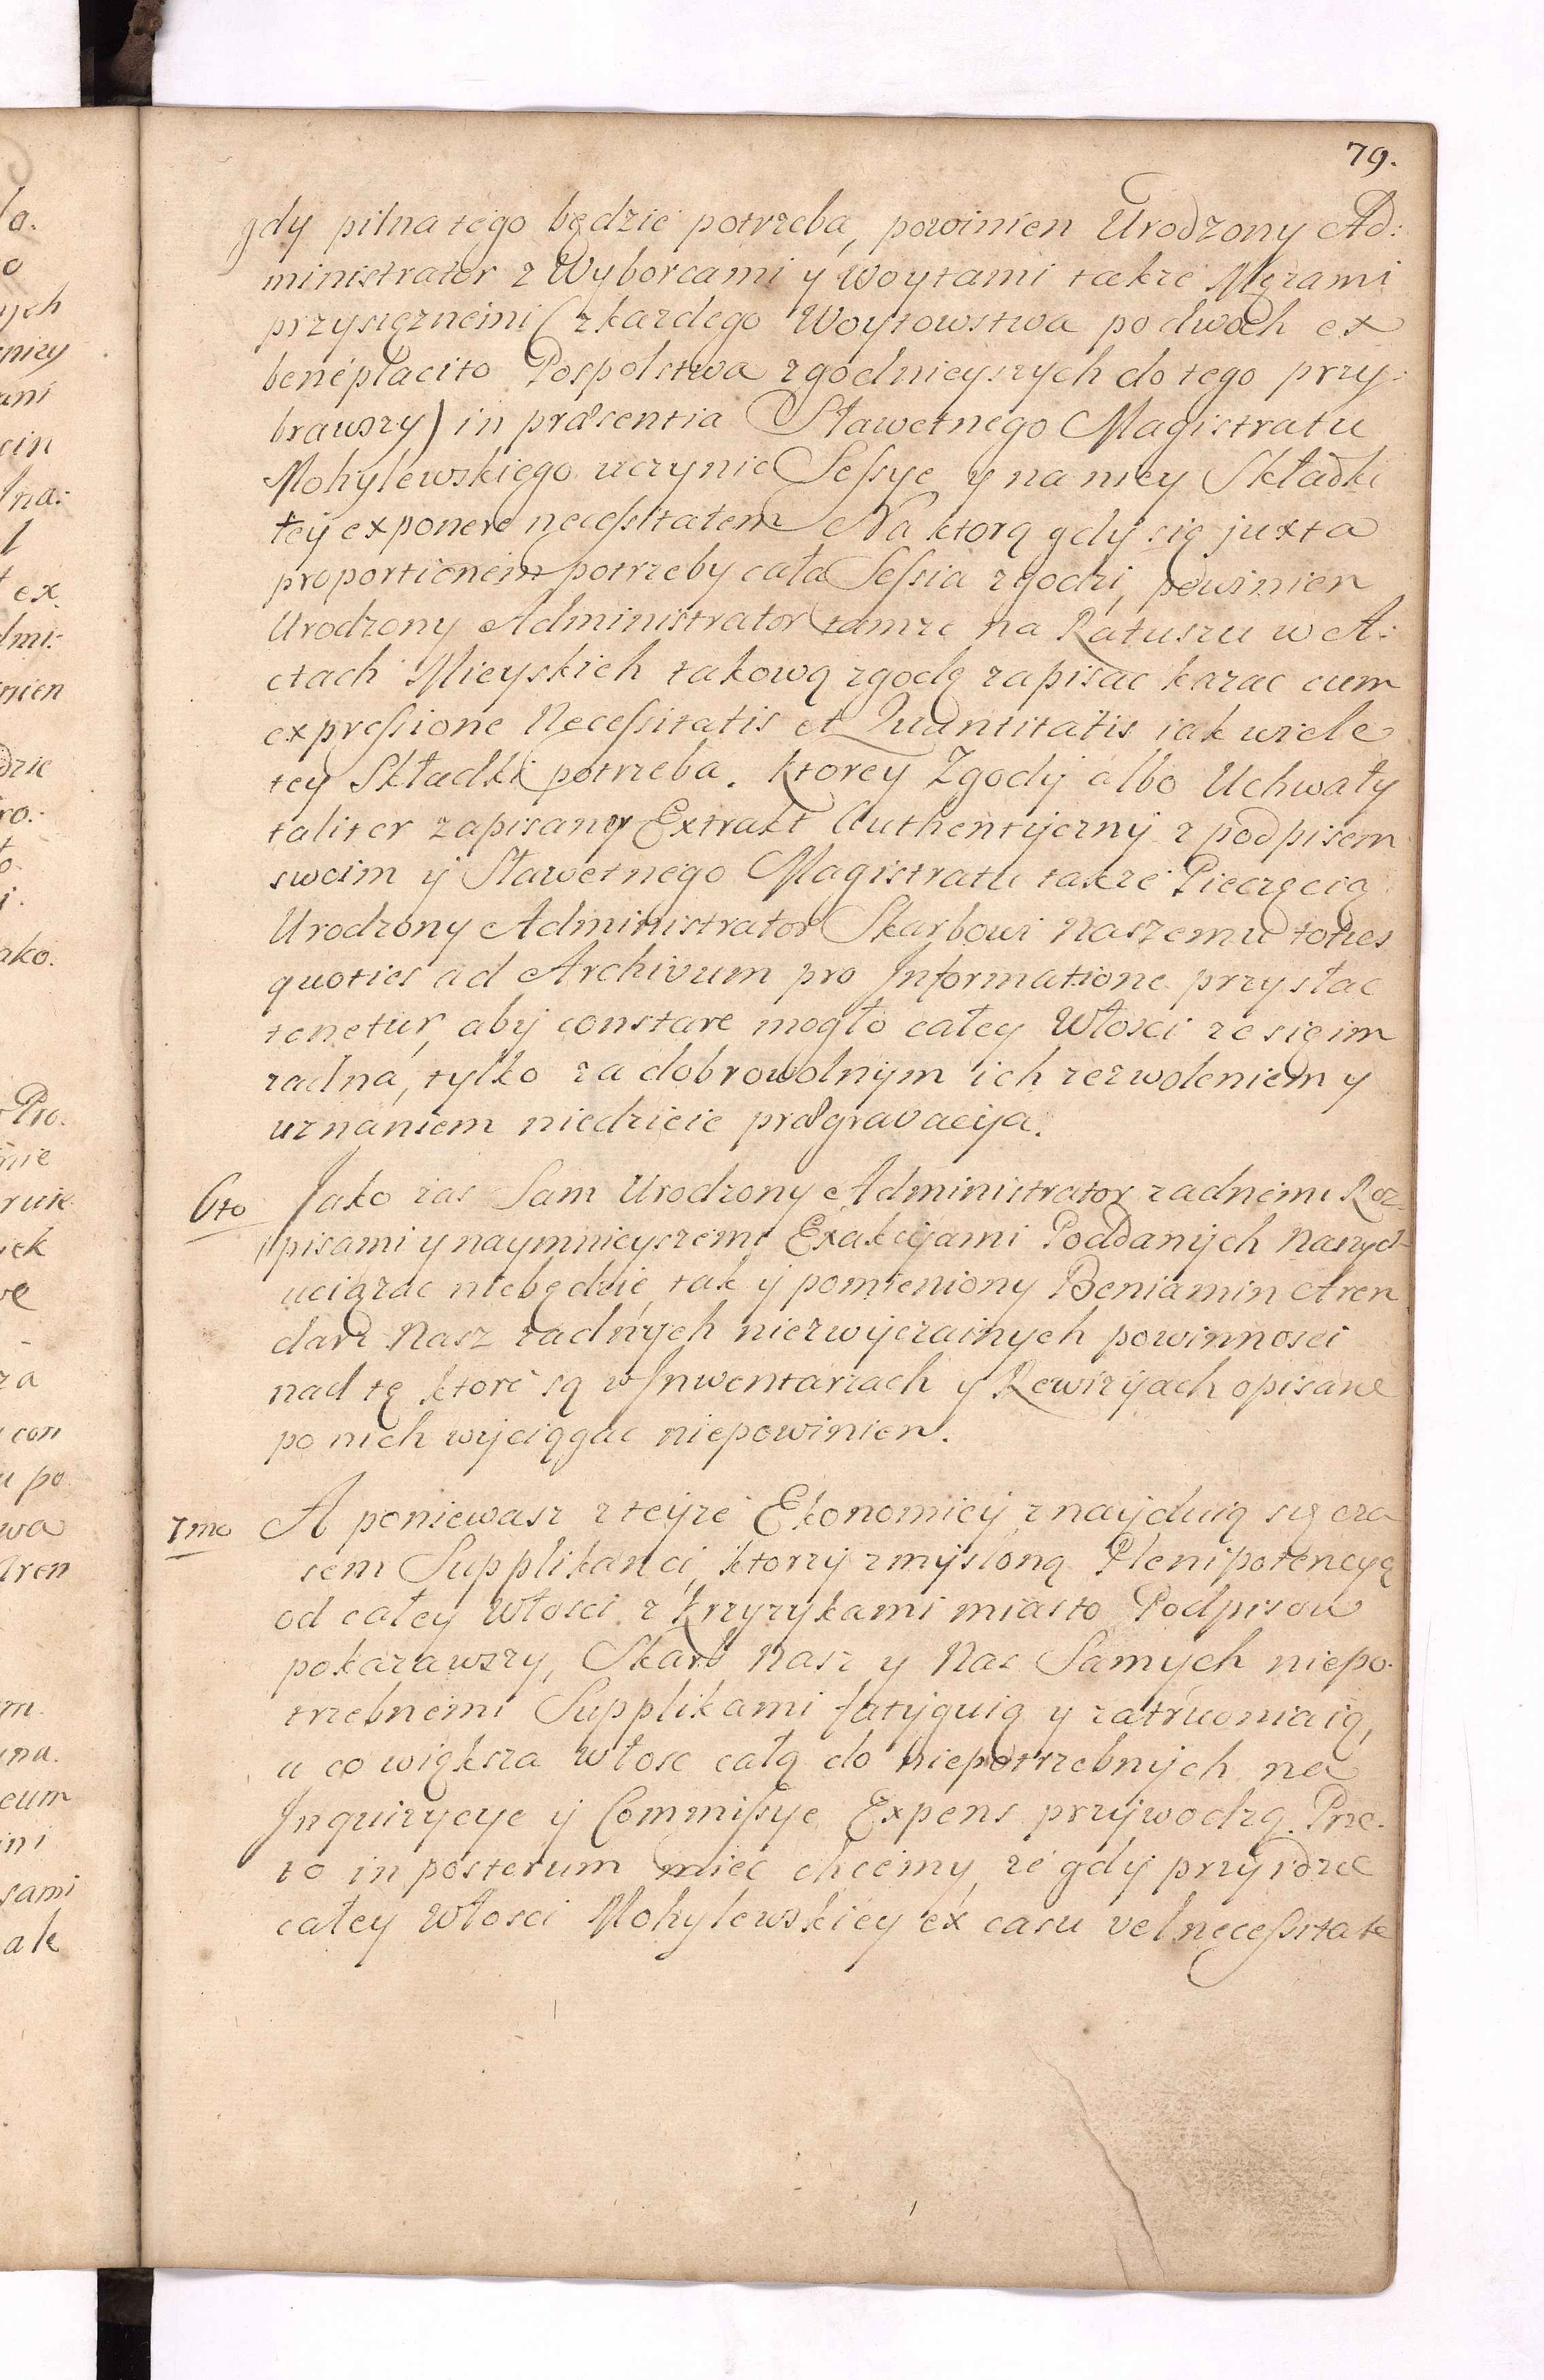 79.
gdy pilna tego będzie potrzeba, powinien Urodzony Ad:
ministrator z Wyborcami y Woytami takze Męzami
przysięznemi (z kazdego Woytowstwa po dwoch ex
beneplacito Pospolstwa zgodnieyszych do tego przy-
brawszy) in præsentia Sławetnego Magistratu
Mohylewskiego uczynic Sessye y na niey Składki
tey exponere necessitatem Na ktorą gdy się juxta
proportionem potrzeby cała Sessia zgodzi, powinien
Urodzony Administrator tamze na Ratuszu w A:
ctach Mieyskich takową zgodę zapisac kazac cum
expressione Necessitatis et Quantitatis iak wiele
tey Składki potrzeba. Ktorey Zgody albo Uchwały
taliter zapisaney Extrakt Authentyczny z podpisem
swoim y Sławetnego Magistratu takze Pieczęcią
Urodzony Administrator Skarbowi Naszemu toties
quoties ad Archivum pro Informatione przysłac
tenetur, aby constare mogło całey Włosci ze się im
zadna, tylko za dobrowolnym ich zezwoleniem y
uznaniem niedzieie prægravacya.
6to Jako zas Sam Urodzony Administrator zadnemi Roz-
pisami y naymnieyszemi Exakcyami Poddanych Naszych
uciązac niebędzie, tak y pomieniony Beniamin Aren
darz Nasz zadnych niezwyczainych powinnosci
nad tę ktore są w Inwentarzach y Rewizyach opisane
po nich wyciągac niepowinien.
7mo A poniewasz z teyze Ekonomiey znayduią się cza
sem Supplikanci, ktorzy zmysloną Plenipotencyą
od całey Włosci z Krzyzykami miasto Podpisow
pokazawszy, Skarb Nasz y Nas Samych niepo-
trzebnemi Supplikami fatyguią y zatrudniaią,
a co większa włosc całą do niepotrzebnych na
Inquizycye y Commissye Expens przywodzą. Prze-
to in posterum miec chcemy, ze gdy przyidzie
całey Włosci Mohylewskiey ex casu vel necessitate